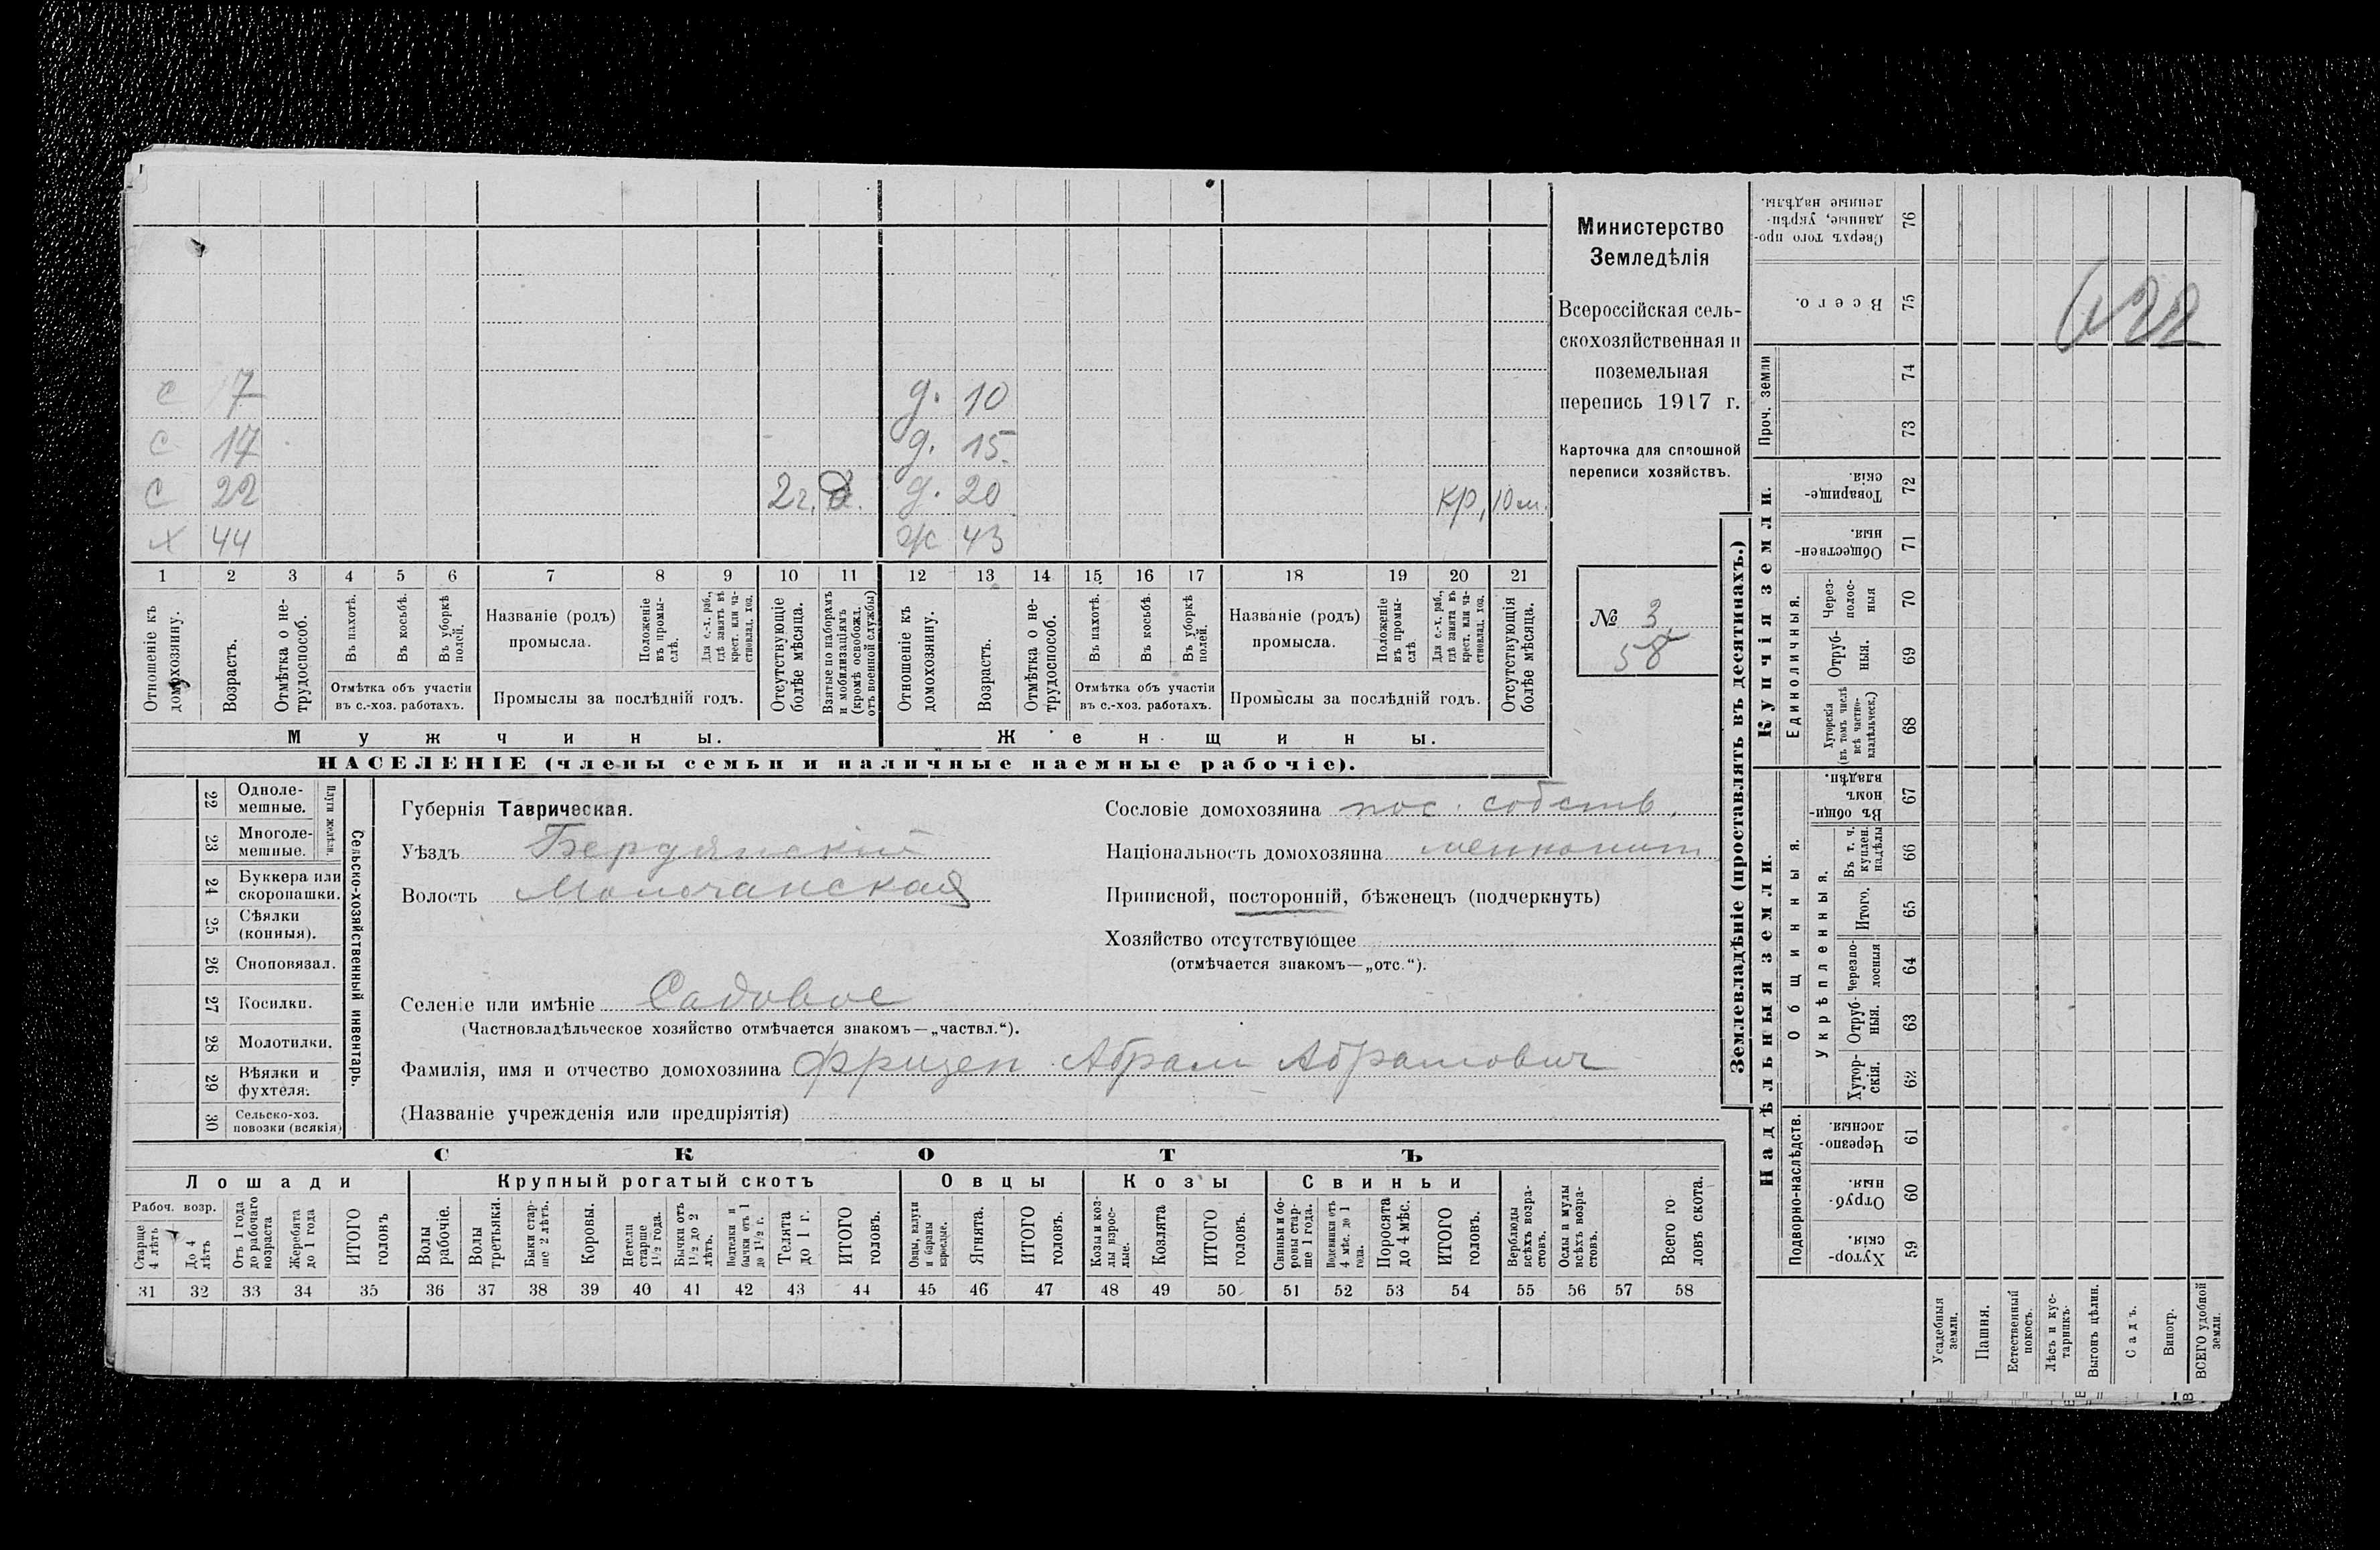 с 7 д. 10
с 17 д. 15
с 22 2 г. д. 20 кр, 10 м.
х 44 ж 43
1 2 3 4 5 6 7 8 9 10 11 12 13 14 15 16 17 18 19 20 21
Отношеніе къ домохозяину.
Возрастъ.
Отмѣтка о не-
трудоспособ.
Въ пахотѣ.
Въ косьбѣ.
Въ уборкѣ полей.
Отмѣтка объ участіи
въ с.-хоз. работахъ.
Названіе (родъ)
промысла.
Положеніе въ промы-
слѣ.
Для с.-х. раб., гдѣ занятъ въ крест. или ча-
стновлад. хоз.
Промыслы за послѣдній годъ.
Отсутствующіе болѣе мѣсяца.
Взятые по наборамъ и мобилизаціямъ (кромѣ освобожд. отъ военной службы)
Отношеніе къ домохозяину.
Возрастъ.
Отмѣтка о не-
трудоспособ.
Въ пахотѣ.
Въ косьбѣ.
Въ уборкѣ полей.
Отмѣтка объ участіи
въ с.-хоз. работахъ.
Названіе (родъ)
промысла.
Положеніе въ промы-
слѣ
Для с.-х. раб., гдѣ занята въ крест. или ча-
стновлад. хоз.
Промыслы за послѣдній годъ.
Отсутствующія болѣе мѣсяца.
Мужчины.
Женщины.
НАСЕЛЕНІЕ (члены семьи и наличные наемные рабочіе).
Министерство
Земледѣлія
Всероссійская сель-
скохозяйственная и
поземельная
перепись 1917 г.
Карточка для сплошной
переписи хозяйствъ.
№ 3
58
22 Одноле-
мешные.
23 Многоле-
мешные.
Плуги желѣзн.
24 Буккера или
скоропашки.
25 Сѣялки
(конныя).
26 Сноповязал.
27 Косилки.
28 Молотилки.
29 Вѣялки и
фухтеля.
30 Сельско-хоз.
повозки (всякія)
Сельско-хозяйственный инвентарь.
Губернія Таврическая.
Уѣздъ Бердянскій
Волость Молочанская
Селеніе или имѣніе Садовое
(Частновладѣльческое хозяйство отмѣчается знакомъ—„частвл.“).
Фамилія, имя и отчество домохозяина Фризен Абрам Абрамович
(Названіе учрежденія или предпріятія)
Сословіе домохозяина пос. собств.
Національность домохозяина меннонит
Приписной, посторонній, бѣженецъ (подчеркнуть)
Хозяйство отсутствующее
(отмѣчается знакомъ—„отс.“).
СКОТЪ
Лошади
Крупный рогатый скотъ
Овцы
Козы
Свиньи
Рабоч. возр.
Старше 4 лѣтъ
До 4 лѣтъ
Отъ 1 года до рабочаго возраста
Жеребята до 1 года
ИТОГО головъ
Волы рабочіе.
Волы третьяки.
Быки стар-
ше 2 лѣтъ.
Коровы.
Нетели старше 1½ года.
Бычки отъ 1½ до 2 лѣтъ.
Нетелки и бычки отъ 1 до 1½ г.
Телята до 1 г.
ИТОГО головъ.
Овцы, валухи и бараны взрослые.
Ягнята.
ИТОГО головъ.
Козы и коз-
лы взрос-
лые.
Козлята
ИТОГО головъ.
Свиньи и бо-
ровы стар-
ше 1 года.
Подсвинки отъ 4 мѣс. до 1 года.
Поросята до 4 мѣс.
ИТОГО головъ.
Верблюды всѣхъ возра-
стовъ.
Ослы и мулы всѣхъ возра-
стовъ.
Всего го-
ловъ скота.
31 32 33 34 35 36 37 38 39 40 41 42 43 44 45 46 47 48 49 50 51 52 53 54 55 56 57 58
Землевладѣніе (проставлять въ десятинахъ.)
Надѣльныя земли.
Купчія земли.
Проч. земли
Подворно-наслѣдств.
Общинныя.
Укрѣпленныя.
Единоличныя.
Сверхъ того про-
данные, укрѣп-
ленные надѣлы. 76
Всего. 75
74
73
Товарище-
скія. 72
Обществен-
ныя. 71
Через-
полос-
ныя 70
Отруб-
ныя. 69
Хуторскія (въ томъ числѣ всѣ частно-
владѣльческ.) 68
Въ общи-
номъ владѣн. 67
Въ т. ч. куплен. надѣлы 66
Итого. 65
Черезпо-
лосныя 64
Отруб-
ныя. 63
Хутор-
скія. 62
Черезпо-
лосныя. 61
Отруб-
ныя. 60
Хутор-
скія. 59
Усадебныя земли.
Пашня.
Естественный покосъ.
Лѣсъ и кус-
тарникъ.
Выгонъ цѣлин.
Садъ.
Виногр.
ВСЕГО удобной земли.